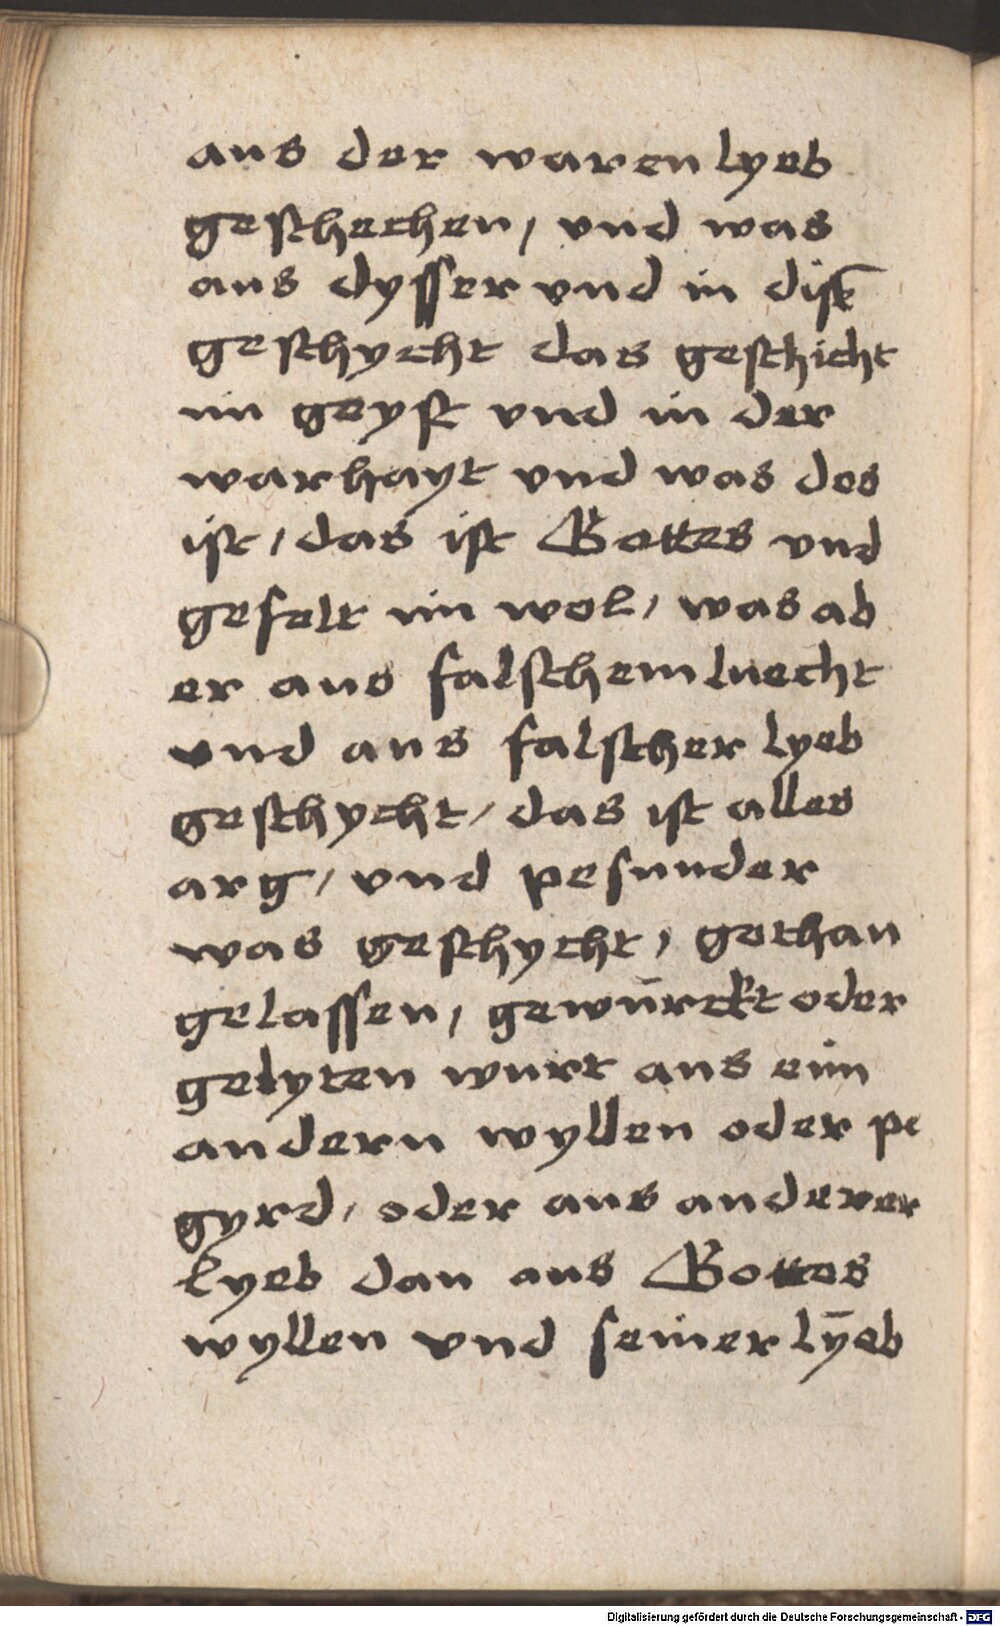 aus der waren lyeb
geschechen, vnd was
aus dysser vnd in
geschycht das geschicht
im geyst vnd in der
warhayt vnd was des
ist, das ist Gottes vnd
gefelt im wol, was ab
er aus falschem luecht
vnd aus falscher lyeb
geschycht, das ist alles
arg, vnd pesunder
was geschycht, gethan
gelassen, gewürckt oder
gelyten wurt aus eim
andern wyllen oder pe
gyrd, oder aus anderer
lyeb dan aus Gottes
wyllen vnd seiner lyeb
Digitalisierung gefördert durch die Deutsche Forschungsgemeinschaft - DFG